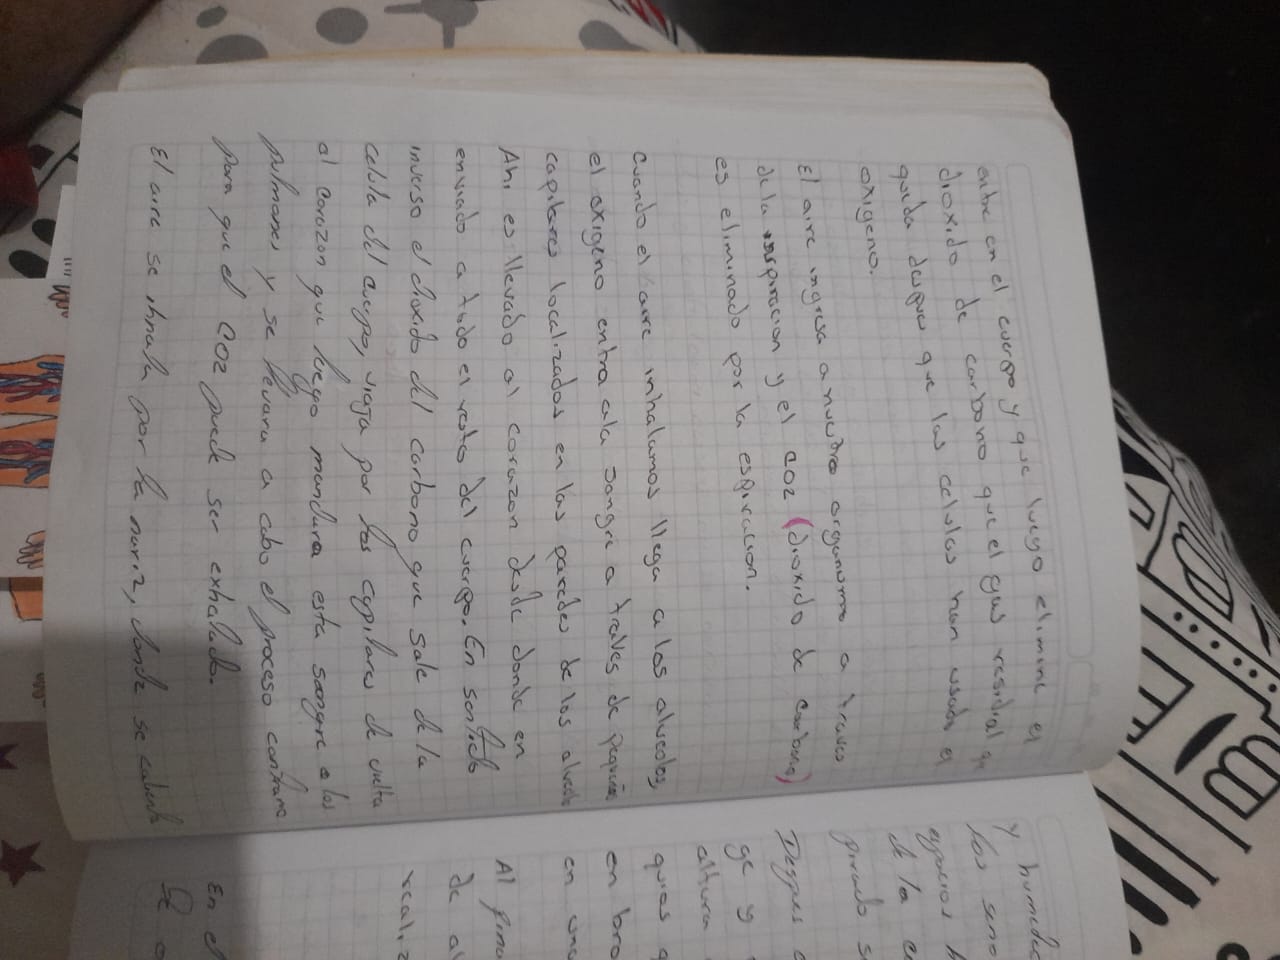 entre en el cuerpo y que luego elimine el
dioxido de carbono que el gas residual que
queda despues que las celulas han usado el
oxigeno.
El aire ingresa a nuestro organismo a traves
de la inspiracion y el CO2 (dioxido de carbono)
es eliminado por la espiracion.
Cuando el aire inhalamos llega a los alveolos,
el oxigeno entra ala sangre a traves de pequeños
capilares localizados en las paredes de los alveolo
Ahi es llevado al corazon desde donde en
enviado a todo el resto del cuerpo. En sentido
inverso el dioxido del carbono que sale de la
celula del cuerpo, viaja por los capilares de vuelta
al corazon que luego mandara esta sangre a los
pulmones y se llevara a cabo el proceso contrario
para que el CO2 puede ser exhalado.
El aire se inhala por la nariz, donde se calienta
y humedec
los seno
espacios h
de la c
pirado s
Despues
ge y
altura
quias
en bro
en una
Al fina
de al
realiz
En el